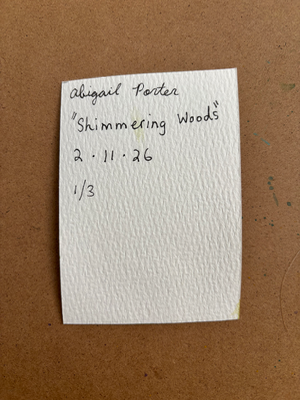 Abigail Porter
"Shimmering Woods"
2 · 11 · 26
1/3